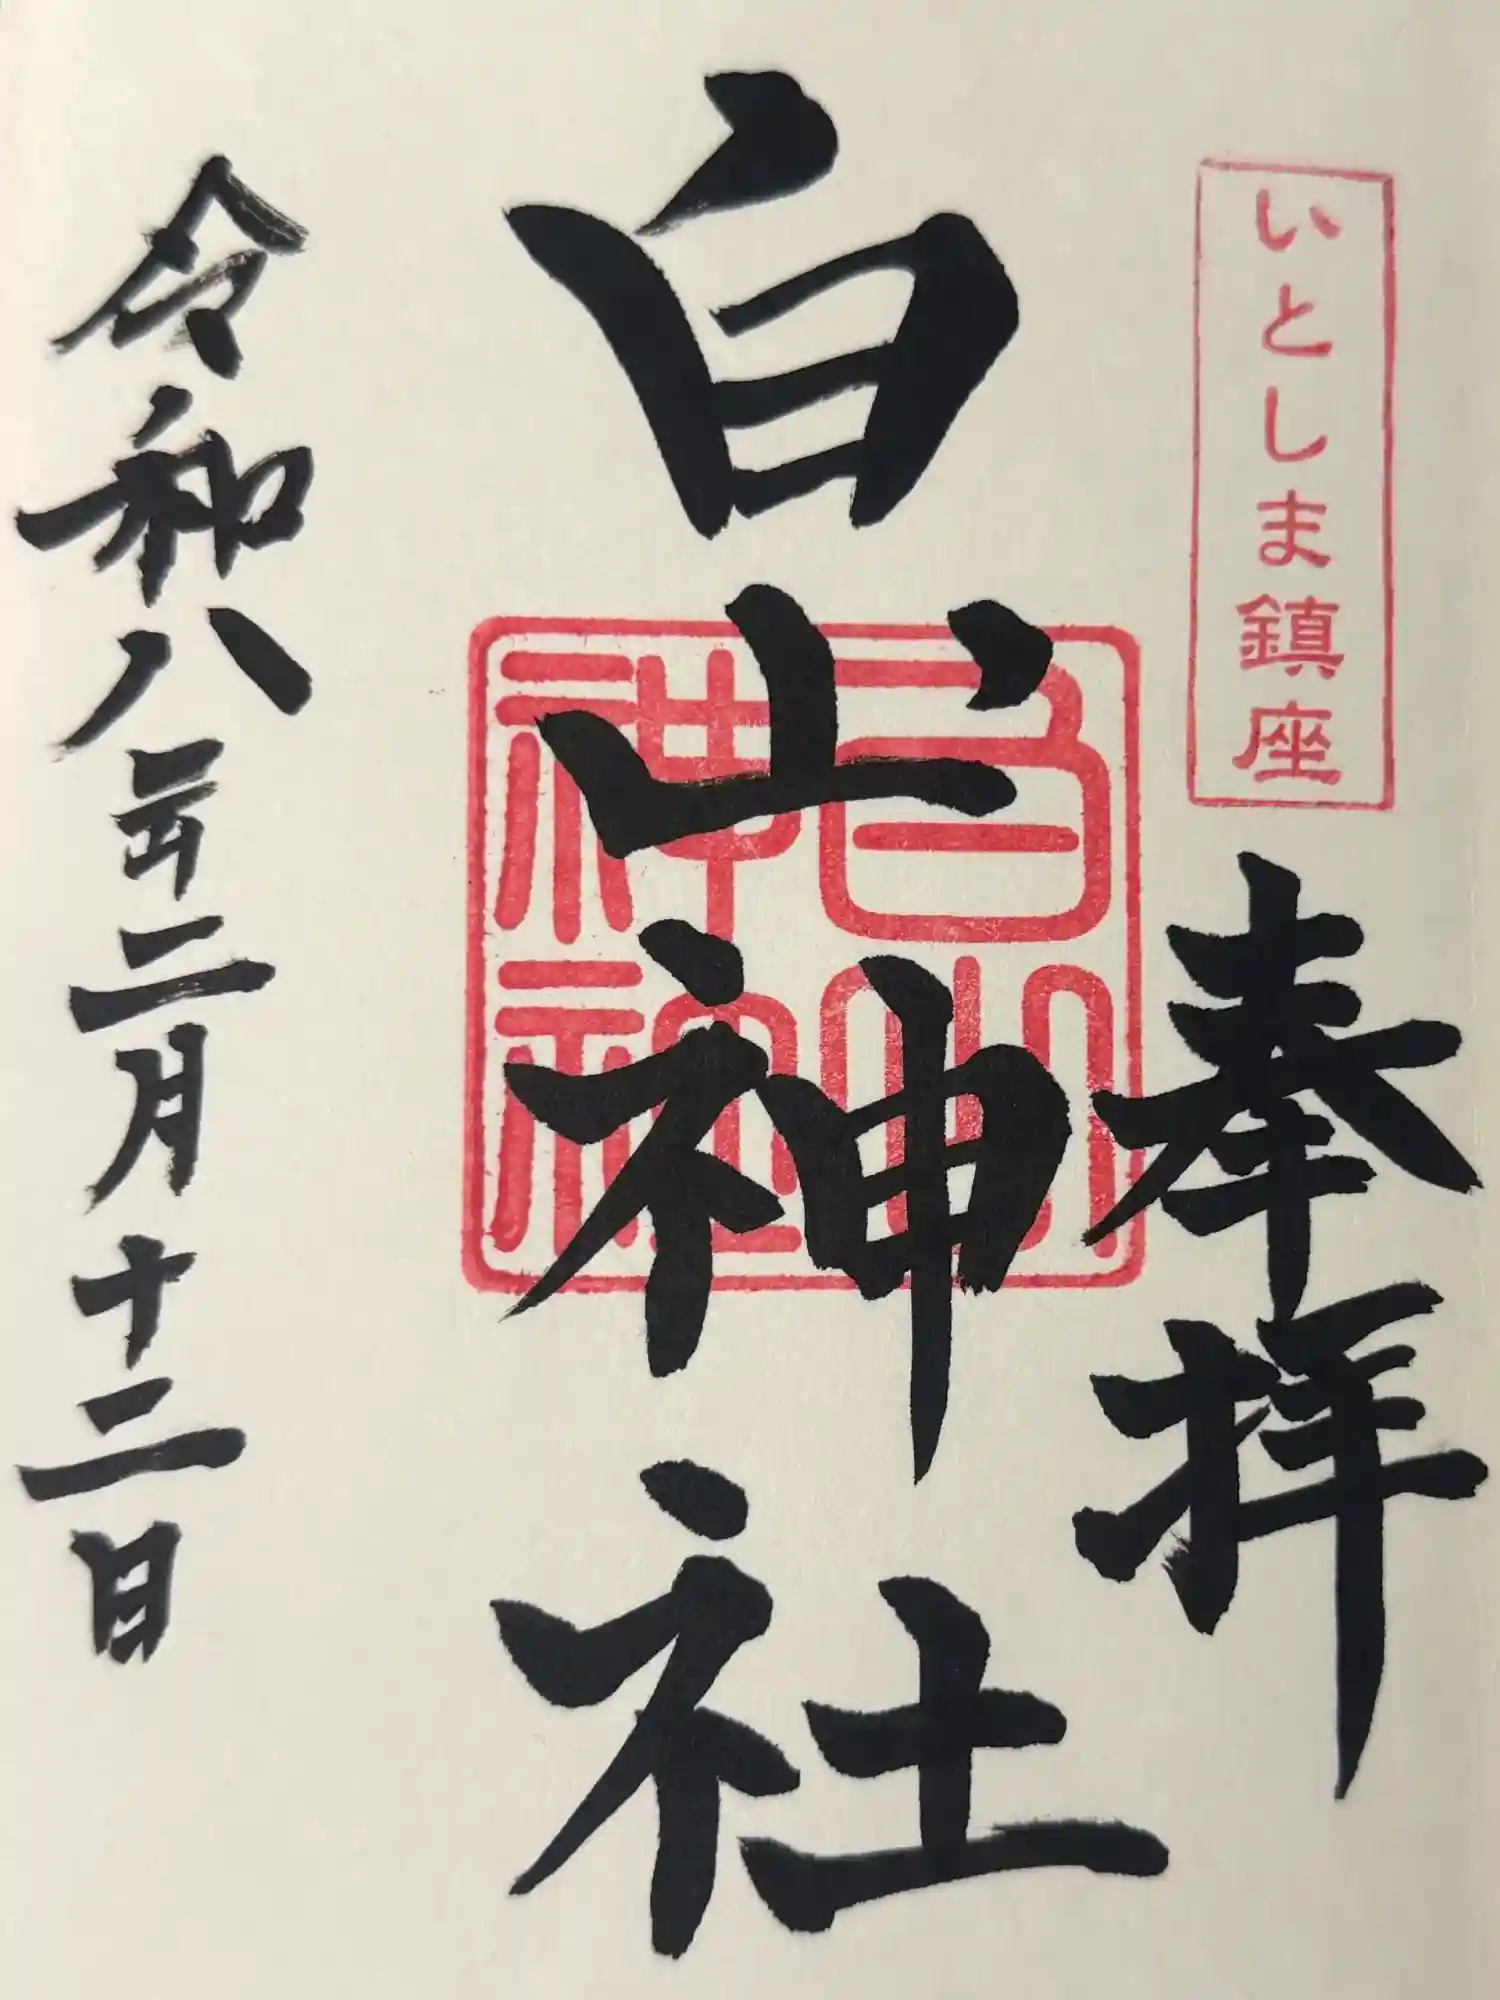 いとしま鎮座
奉拝
白山神社
白山
神社
令和八年二月十二日